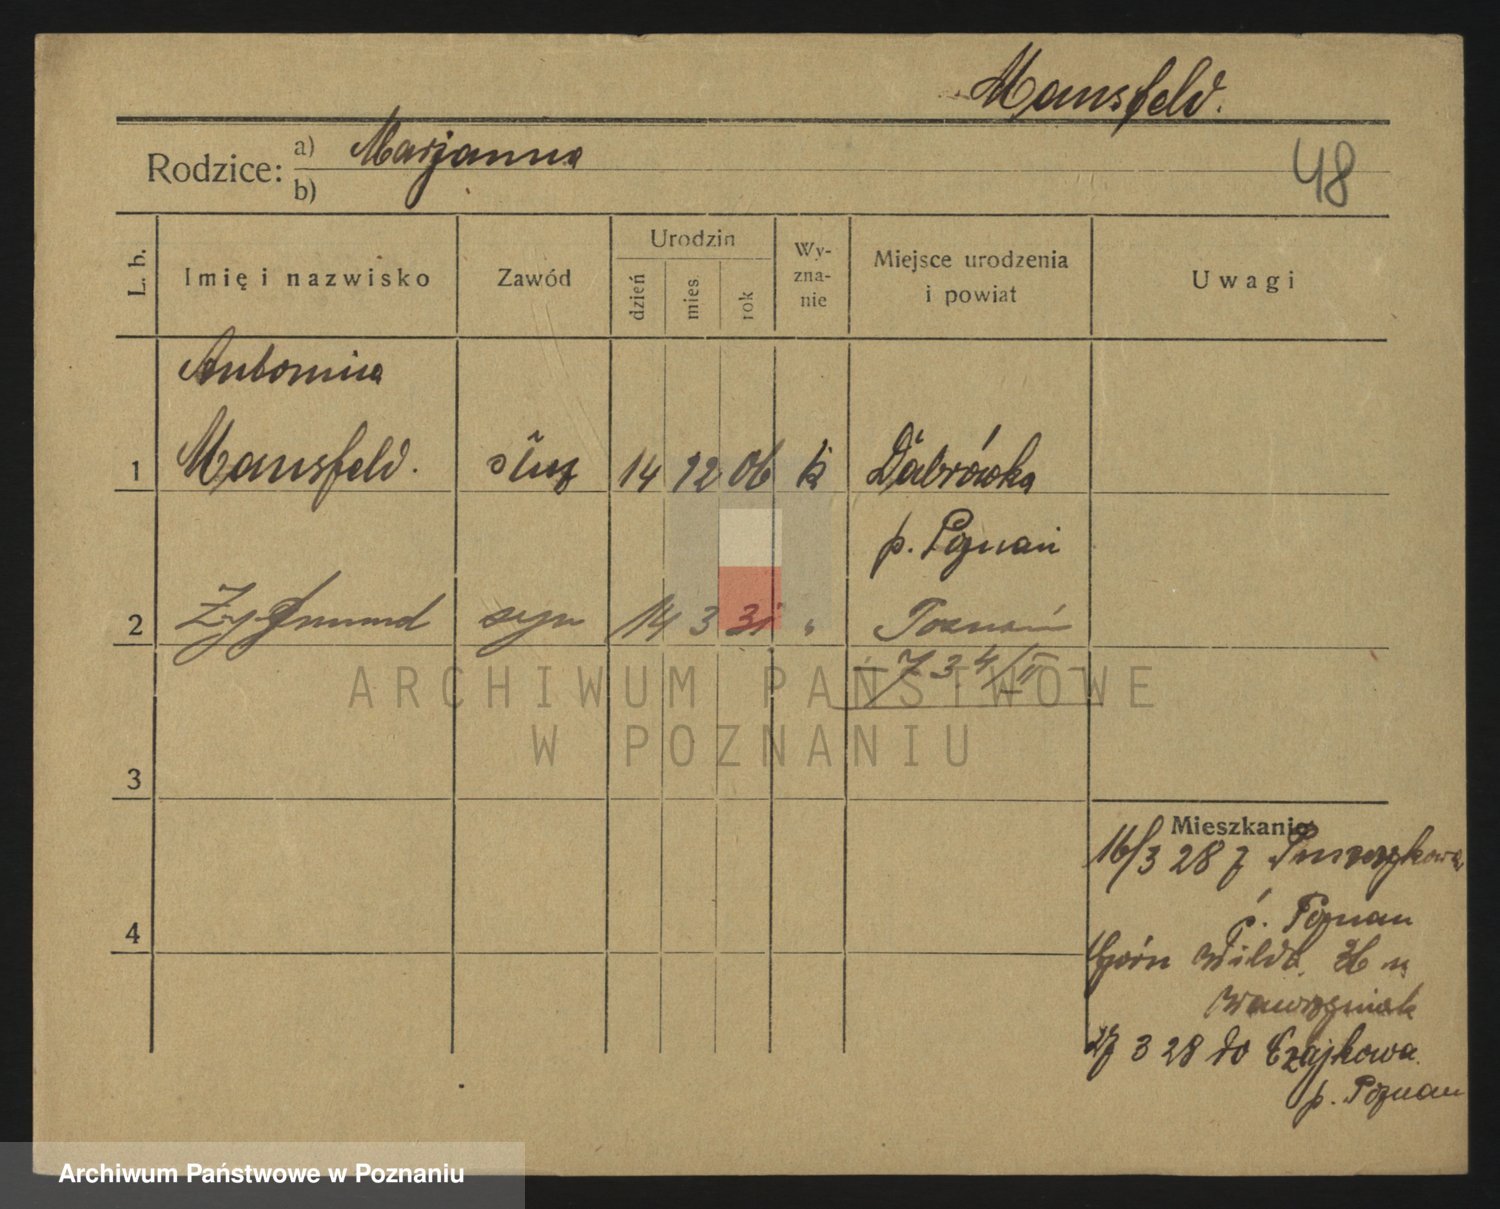 Mansfeld.
Rodzice: a) Marjanna
b)
48
L. b.
Imię i nazwisko
Zawód
Urodzin
dzień
mies.
rok
Wy-
zna-
nie
Miejsce urodzenia
i powiat
Uwagi
Antonina
1 Mansfeld. służ 14 12 06 k Dąbrówka
p. Poznań
2 Zygmund syn 14 3 31 " Poznań
734/II
ARCHIWUM PAŃSTWOWE
W POZNANIU
3
Mieszkanie
16/3 28 z
4
p. Poznań
Górn Wilda 36 u
Wawrzyniak
27 3 28 do Czajkowa
p. Poznań
Archiwum Państwowe w Poznaniu